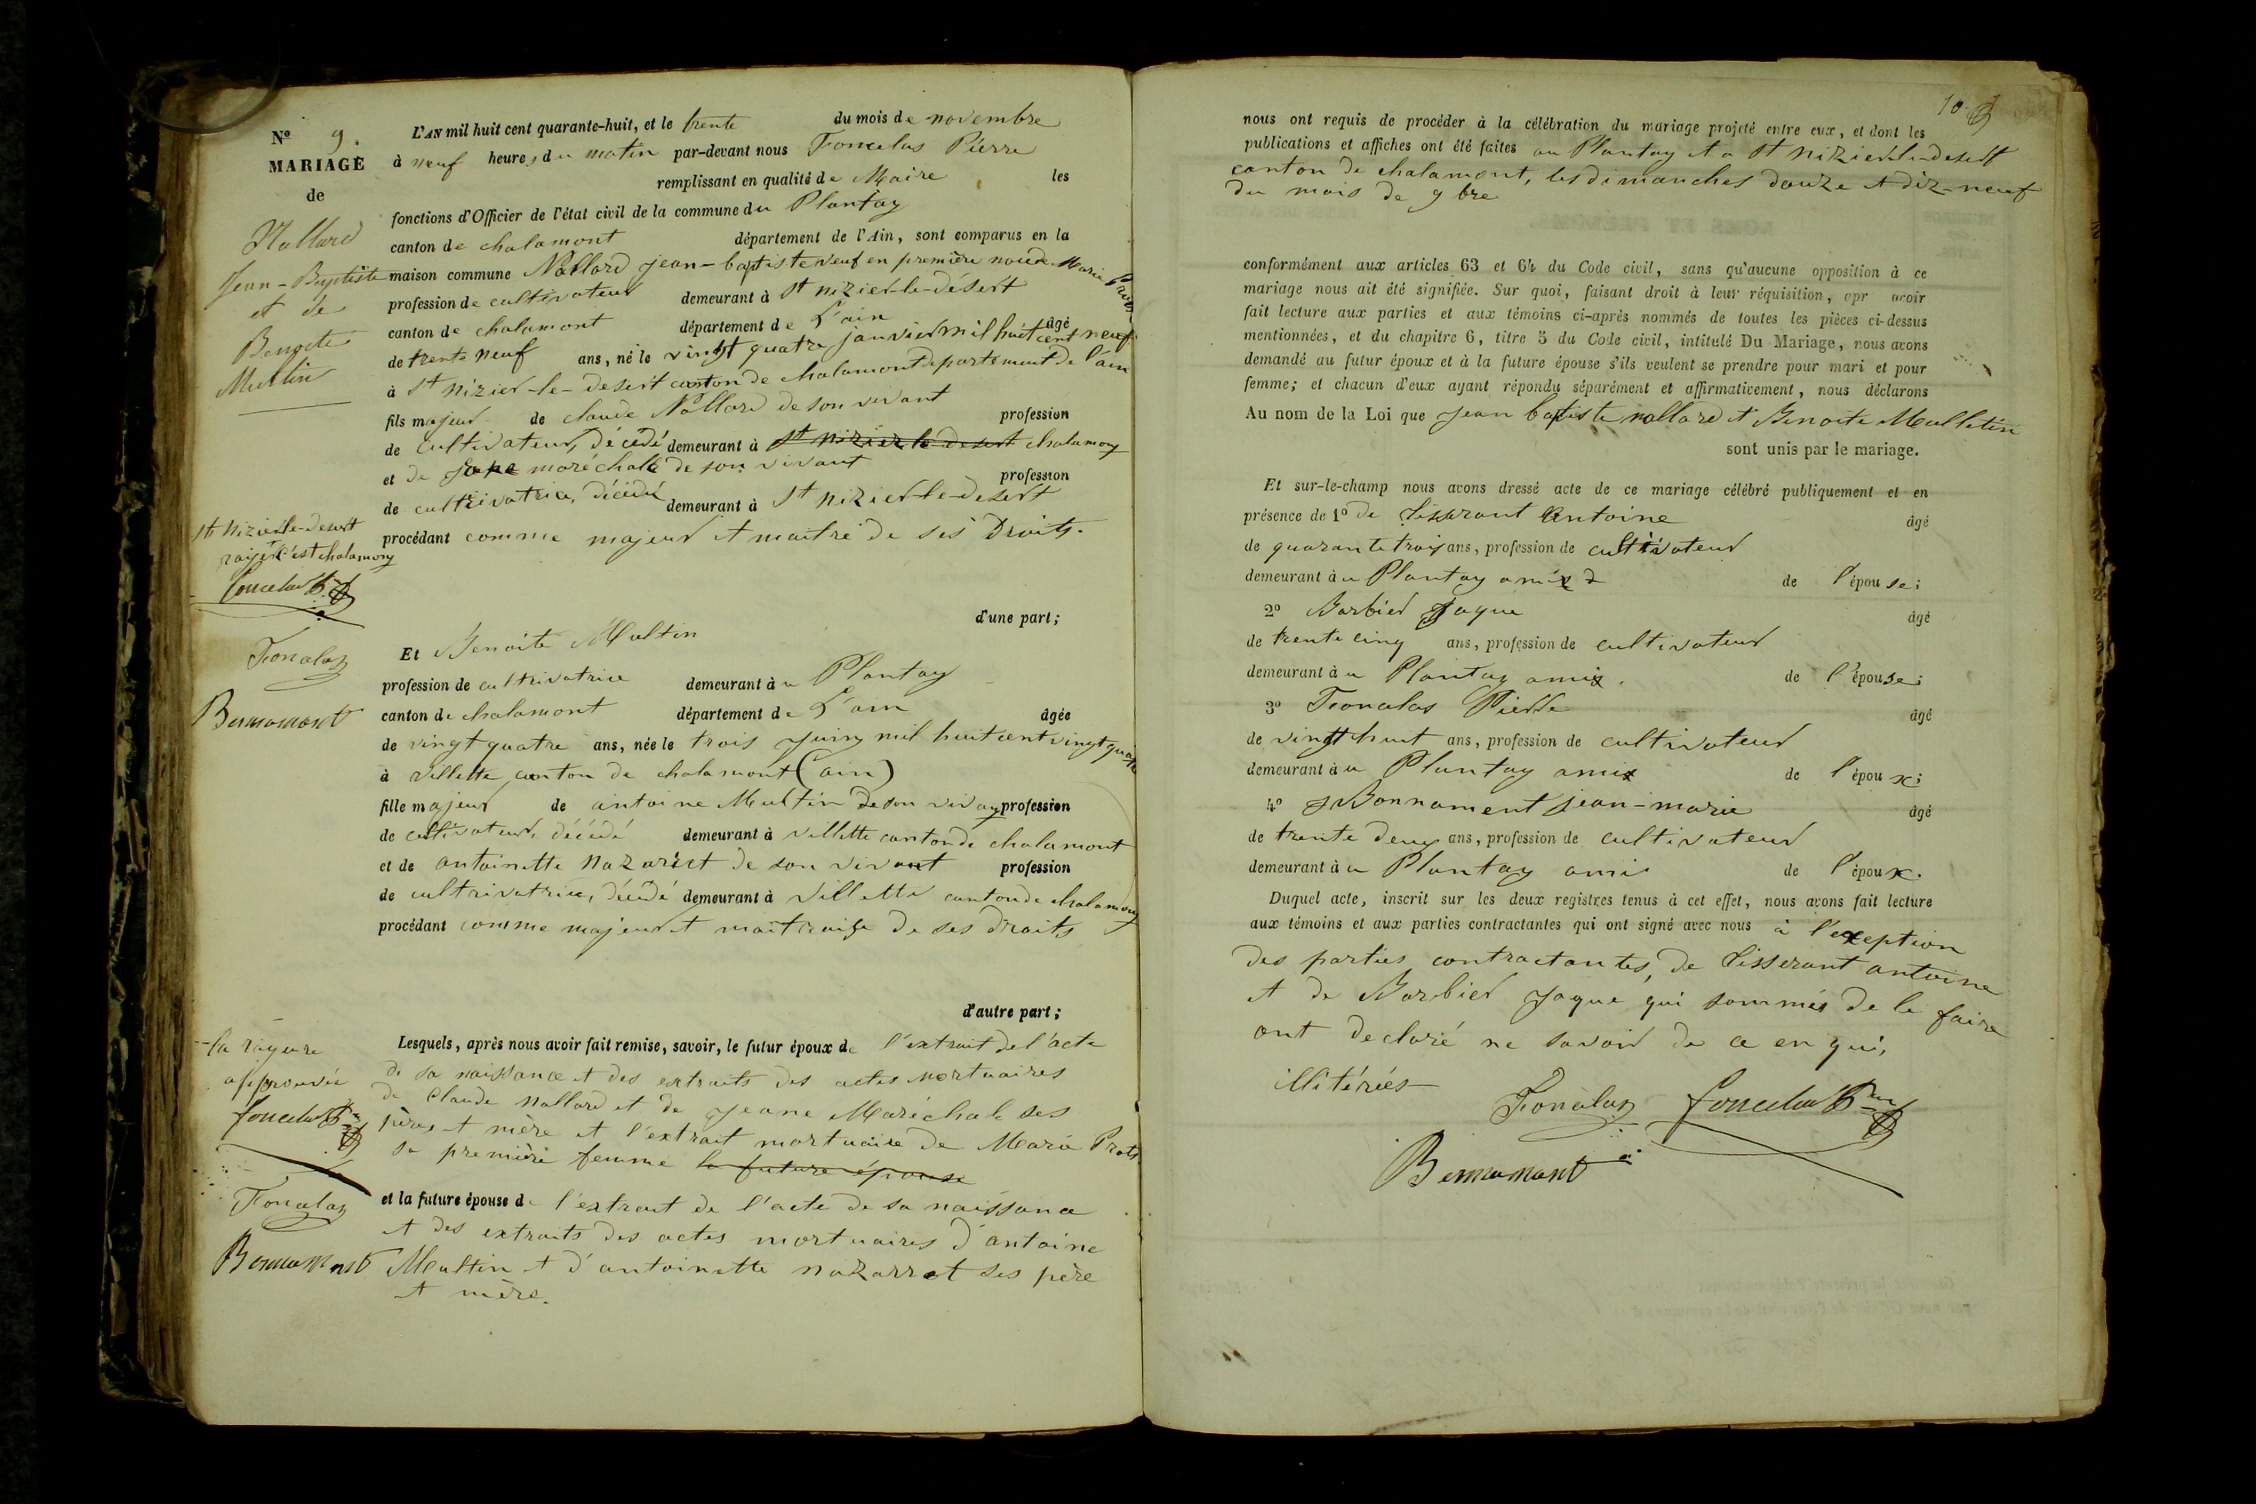 N° 9.
MARIAGE
de
Nallard
Jean-Baptiste
et de
Benoite
Multin
L'AN mil huit cent quarante-huit, et le trente du mois de novembre
à neuf heures du matin par-devant nous Foncelas Pierre
remplissant en qualité de Maire les
fonctions d'Officier de l'état civil de la commune du Plantay
canton de chalamont département de l'Ain, sont comparus en la
maison commune Nallard jean-baptiste veuf en première noce de Marie Prots
profession de cultivateur demeurant à st nizier-le-désert
canton de chalamont département de L'ain âgé
de trente neuf ans, né le vingt quatre janvier mil huit cent neuf
à st nizier-le-desert canton de chalamont departement de l'ain
fils majeur de claude Nallard de son vivant profession
de cultivateur, décédé demeurant à st nizier le desert chalamont
et de Jane maréchale de son vivant profession
de cultrivatrice, décédé demeurant à st nizier-le-desert
procédant comme majeur et maitre de ses Droits.
st nizier le-desert
rayé c'est chalamont
foncelas Pre
Foncelas
Bonnamant
d'une part;
Et Benoite Multin
profession de cultrivatrice demeurant au Plantay
canton de chalamont département de L'ain âgée
de vingt quatre ans, née le trois juin mil huit cent vingt quatre
à villette canton de chalamont (ain)
fille majeur de antoine Multin de son vivant profession
de cultivateur, décédé demeurant à villette canton de chalamont
et de antoinette Nazaret de son vivant profession
de cultrivatrice, décédé demeurant à villette canton de chalamont
procédant comme majeur et maitraise de ses droits
d'autre part;
la rayure
approuvée
foncelas Pre
Foncelas
Bonnamant
Lesquels, après nous avoir fait remise, savoir, le futur époux de l'extrait de l'acte
de sa naissance et des extraits des actes mortuaires
de Claude Nallard et de Jeane Maréchale ses
père et mère et l'extrait mortuaire de Marie Prots
sa première femme la future épouse
et la future épouse de l'extrait de l'acte de sa naissance
et des extraits des actes mortuaires d'antoine
Multin et d'antoinette nazarret ses père
et mère.
10.
nous ont requis de procéder à la célébration du mariage projeté entre eux, et dont les
publications et affiches ont été faites au Plantay et a st nizier-le-desert
canton de chalamont, les dimanches douze et dix-neuf
du mois de 9bre
conformément aux articles 63 et 64 du Code civil, sans qu'aucune opposition à ce
mariage nous ait été signifiée. Sur quoi, faisant droit à leur réquisition, apr avoir
fait lecture aux parties et aux témoins ci-après nommés de toutes les pièces ci-dessus
mentionnées, et du chapitre 6, titre 5 du Code civil, intitulé Du Mariage, nous avons
demandé au futur époux et à la future épouse s'ils veulent se prendre pour mari et pour
femme; et chacun d'eux ayant répondu séparément et affirmativement, nous déclarons
Au nom de la Loi que jean baptiste nallard et Benoite Mulletin
sont unis par le mariage.
Et sur-le-champ nous avons dressé acte de ce mariage célébré publiquement et en
présence de 1° de Tisserant Antoine âgé
de quarante trois ans, profession de cultivateur
demeurant au Plantay ami de l'épouse;
2° Barbier Jaque âgé
de trente cinq ans, profession de cultivateur
demeurant au Plantay ami de l'épouse;
3° Foncelas Pierre âgé
de vingt huit ans, profession de cultivateur
demeurant au Plantay ami de l'époux;
4° Bonnament jean-marie âgé
de trente deux ans, profession de cultivateur
demeurant au Plantay ami de l'époux.
Duquel acte, inscrit sur les deux registres tenus à cet effet, nous avons fait lecture
aux témoins et aux parties contractantes qui ont signé avec nous à l'exception
des parties contractantes, de Tisserant antoine
et de Barbier Jaque qui sommés de le faire
ont declaré ne savoir de ce enquis,
illitérées
Foncelas foncelas Pre
Bonnamant